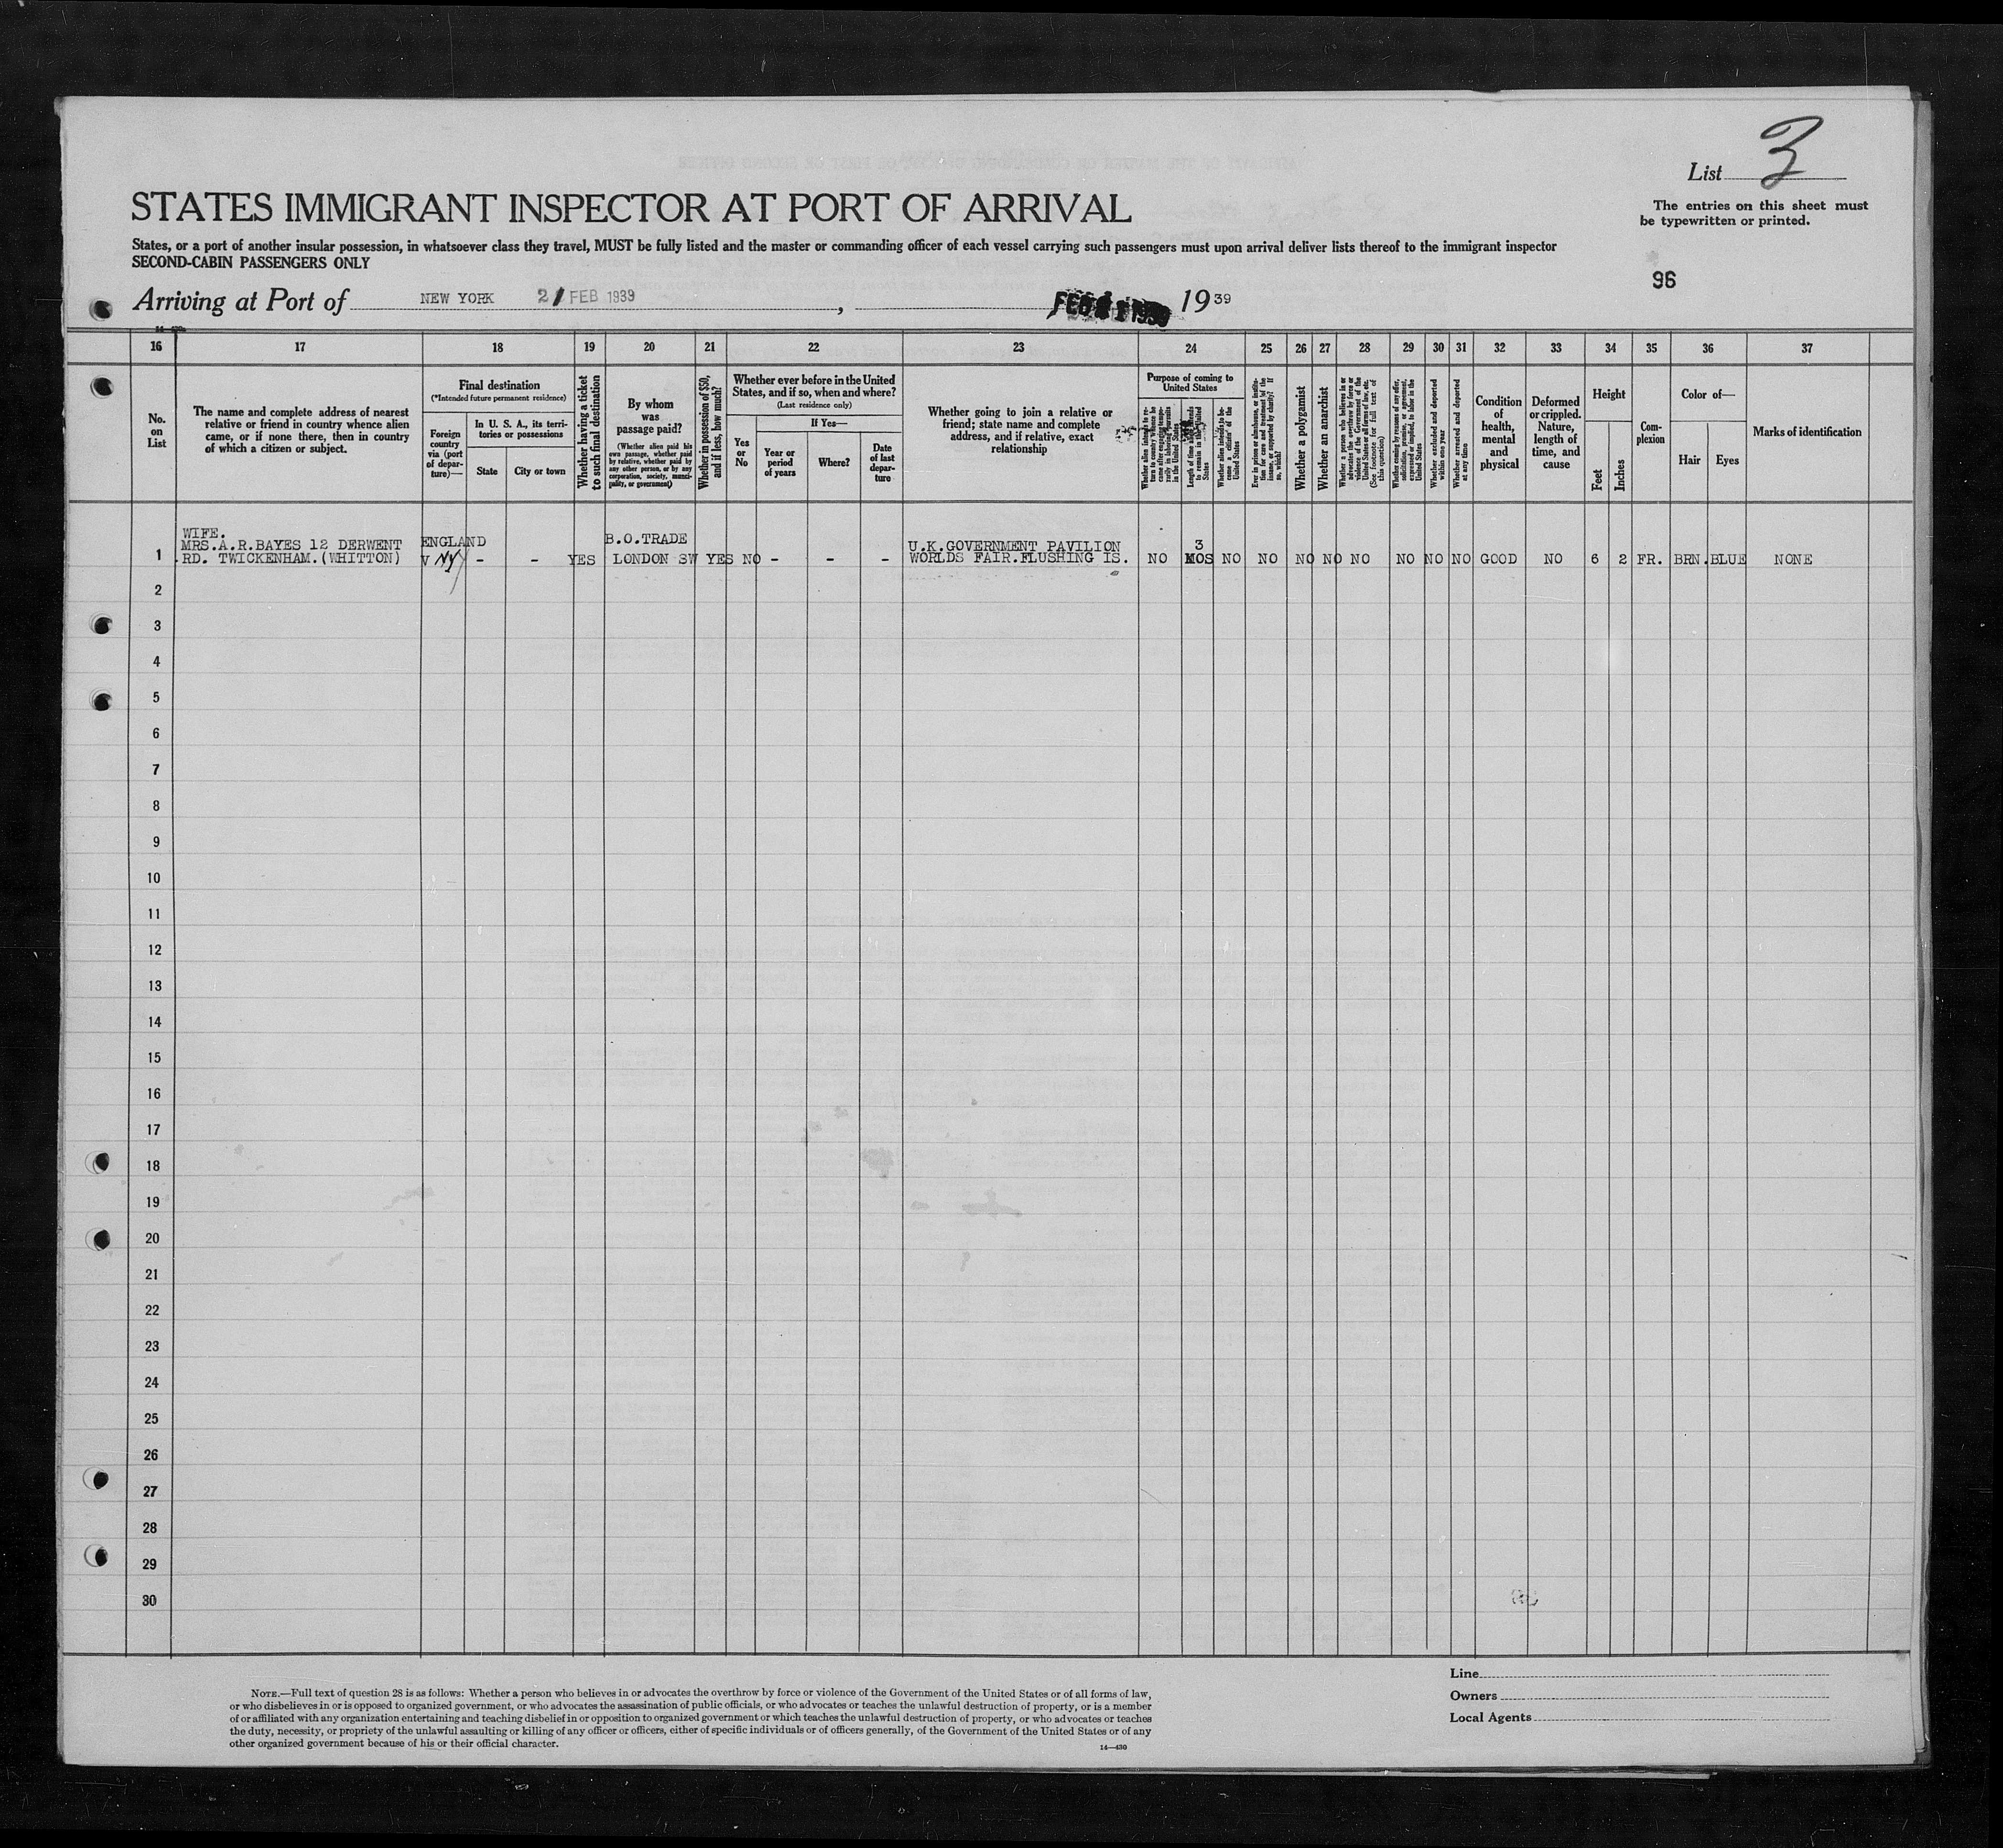 List 3
STATES IMMIGRANT INSPECTOR AT PORT OF ARRIVAL
The entries on this sheet must
be typewritten or printed.
States, or a port of another insular possession, in whatsoever class they travel, MUST be fully listed and the master or commanding officer of each vessel carrying such passengers must upon arrival deliver lists thereof to the immigrant inspector
SECOND-CABIN PASSENGERS ONLY
96
Arriving at Port of NEW YORK 21 FEB 1939, 1939
16 17 18 19 20 21 22 23 24 25 26 27 28 29 30 31 32 33 34 35 36 37
No.
on
List
The name and complete address of nearest
relative or friend in country whence alien
came, or if none there, then in country
of which a citizen or subject.
Final destination
(*Intended future permanent residence)
Foreign
country
via (port
of depar-
ture)—
In U. S. A., its terri-
tories or possessions
State
City or town
Whether having a ticket
to such final destination
By whom
was
passage paid?
(Whether alien paid his
own passage, whether paid
by relative, whether paid by
any other person, or by any
corporation, society, munici-
pality, or government)
Whether in possession of $50,
and if less, how much?
Whether ever before in the United
States, and if so, when and where?
(Last residence only)
Yes
or
No
If Yes—
Year or
period
of years
Where?
Date
of last
depar-
ture
Whether going to join a relative or
friend; state name and complete
address, and if relative, exact
relationship
Purpose of coming to
United States
Whether alien intends to re-
turn to country whence he
came after engaging tempo-
rarily in laboring pursuits
in the United States
Length of time alien intends
to remain in the United
States
Whether alien intends to be-
come a citizen of the
United States
Ever in prison or almshouse, or institu-
tion for care and treatment of the
insane, or supported by charity? If
so, which?
Whether a polygamist
Whether an anarchist
Whether a person who believes in or
advocates the overthrow by force or
violence of the Government of the
United States or all forms of law, etc.
(See footnote for full text of
this question)
Whether coming by reasons of any offer,
solicitation, promise, or agreement,
expressed or implied, to labor in the
United States
Whether excluded and deported
within one year
Whether arrested and deported
at any time
Condition
of
health,
mental
and
physical
Deformed
or crippled.
Nature,
length of
time, and
cause
Height
Feet
Inches
Com-
plexion
Color of—
Hair
Eyes
Marks of identification
WIFE.
MRS.A.R.BAYES 12 DERWENT ENGLAND B.O.TRADE U.K.GOVERNMENT PAVILION 3
1 RD. TWICKENHAM.(WHITTON) V NY - - YES LONDON SW YES NO - - - WORLDS FAIR.FLUSHING IS. NO MOS NO NO NO NO NO NO NO NO GOOD NO 6 2 FR. BRN. BLUE NONE
2
3
4
5
6
7
8
9
10
11
12
13
14
15
16
17
18
19
20
21
22
23
24
25
26
27
28
29
30
NOTE.—Full text of question 28 is as follows: Whether a person who believes in or advocates the overthrow by force or violence of the Government of the United States or of all forms of law,
or who disbelieves in or is opposed to organized government, or who advocates the assassination of public officials, or who advocates or teaches the unlawful destruction of property, or is a member
of or affiliated with any organization entertaining and teaching disbelief in or opposition to organized government or which teaches the unlawful destruction of property, or who advocates or teaches
the duty, necessity, or propriety of the unlawful assaulting or killing of any officer or officers, either of specific individuals or of officers generally, of the Government of the United States or of any
other organized government because of his or their official character.
14—430
Line
Owners
Local Agents